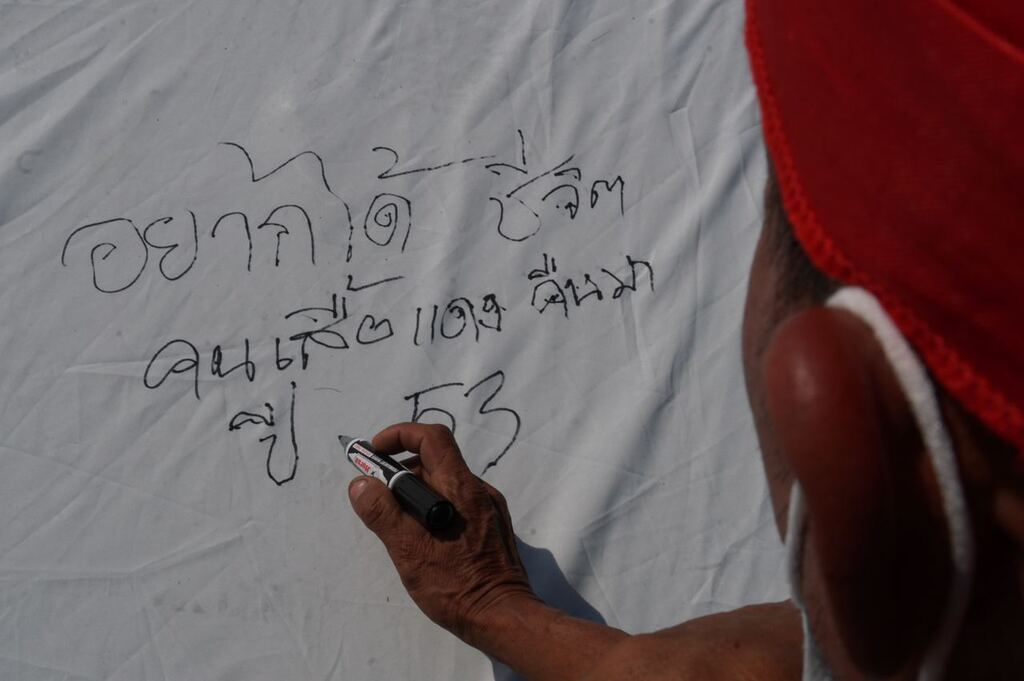 อยากได้ ชีวิต
คนเสื้อแดง คืนมา
ปี 53